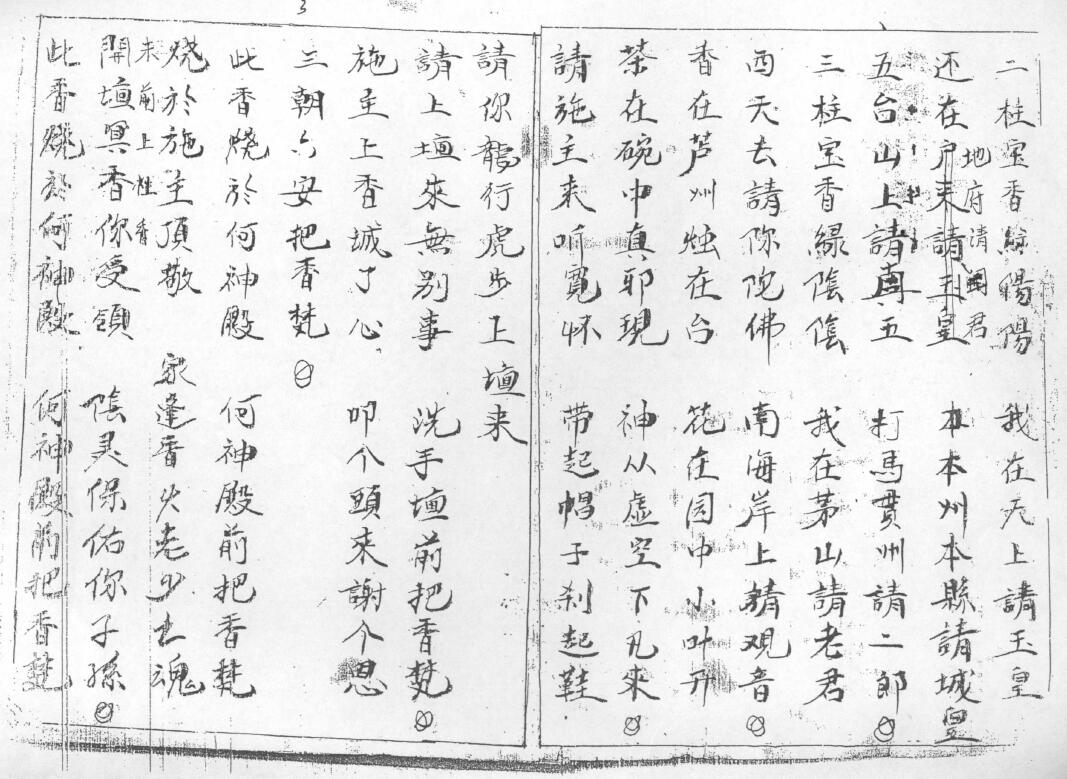 二柱宝香綠陽陽 我在天上請玉皇
还在户末請玉皇 本本州本縣請城皇
地府清閻君
五台山上請真五 打馬贯州請二郎
三柱宝香緑陰陰 我在茅山請老君
西天去請弥陀佛 南海岸上請观音
香在芦州烛在台 花在园中小叶开
茶在碗中真耶現 神从虚空下凡來
請施主来听寛怀 带起帽子刹起鞋
請你龍行虎步上壇来
請上壇來無别事 洗手壇前把香焚
施主上香城了心 叩个頭来謝个恩
三朝六安把香焚
此香燒於何神殿 何神殿前把香焚
燒於施主頂敬 家逢香火老少士魂
来前上柱香
開壇冥香你受領 陰灵保佑你子孫
此香燒於何神殿 何神殿前把香焚